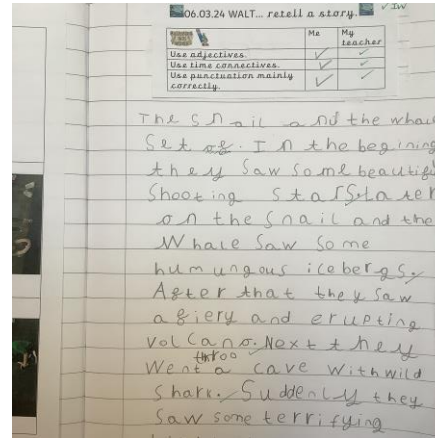 06.03.24 WALT... retell a story. ✓ IW
Me My teacher
Use adjectives. ✓ ✓
Use time connectives. ✓ ✓
Use punctuation mainly correctly. ✓ ✓
The Snail and the whale
Set of. In the begining
they Saw Some beautiful
Shooting Stars. Later
on the Snail and the
Whale Saw Some
humungous icebergs.
After that they Saw
a fiery and erupting
volcano. Next they
Went throo a cave with wild
Shark. Suddenly they
Saw some terrifying